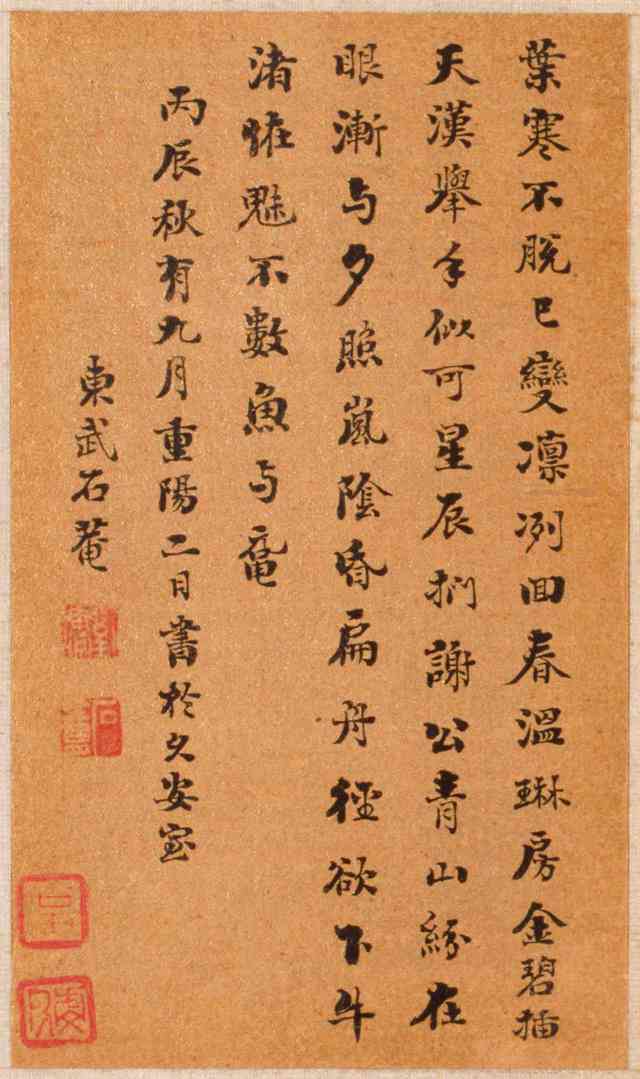 葉寒不脫已變凛冽囬春溫琳房金碧插
天漢舉手似可星辰捫謝公青山紛在
眼漸与夕照嵐陰昏扁舟徑欲下牛
渚恠魅不數魚与黿
丙辰秋有九月重陽二日書於久安室
東武石菴